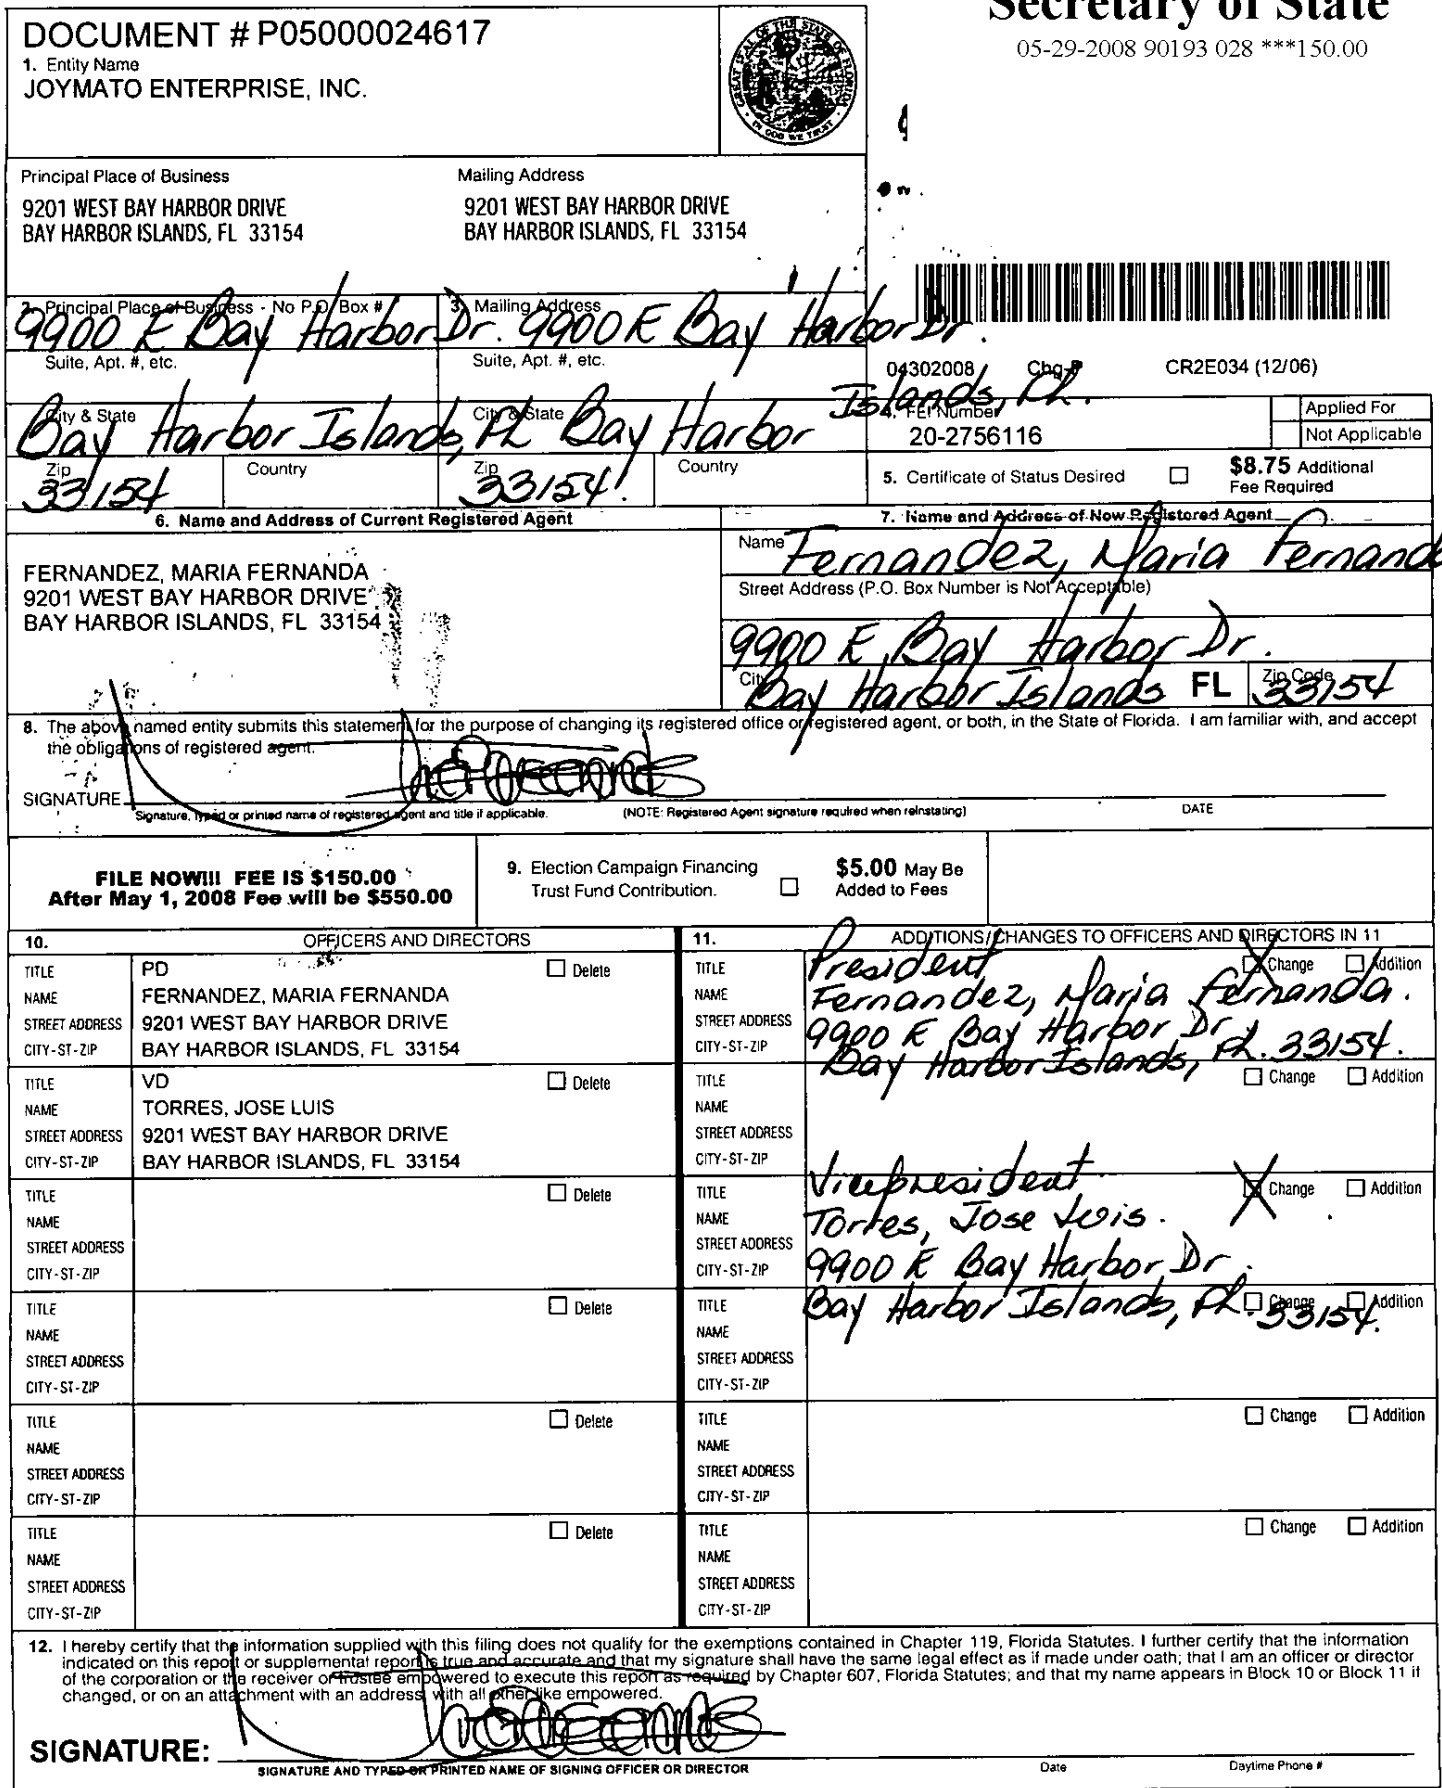 Secretary of State
05-29-2008 90193 028 ***150.00
DOCUMENT # P05000024617
1. Entity Name
JOYMATO ENTERPRISE, INC.
GREAT SEAL OF THE STATE OF FLORIDA
IN GOD WE TRUST
Principal Place of Business
9201 WEST BAY HARBOR DRIVE
BAY HARBOR ISLANDS, FL 33154
Mailing Address
9201 WEST BAY HARBOR DRIVE
BAY HARBOR ISLANDS, FL 33154
2. Principal Place of Business - No P.O. Box #
9900 E Bay Harbor Dr.
3. Mailing Address
9900 E Bay Harbor Dr.
Suite, Apt. #, etc.
Suite, Apt. #, etc.
04302008 Chg-P CR2E034 (12/06)
City & State
Bay Harbor Islands, FL
City & State
Bay Harbor Islands, FL.
Zip
33154
Country
Zip
33154.
Country
4. FEI Number
20-2756116
Applied For
Not Applicable
5. Certificate of Status Desired
$8.75 Additional
Fee Required
6. Name and Address of Current Registered Agent
FERNANDEZ, MARIA FERNANDA
9201 WEST BAY HARBOR DRIVE
BAY HARBOR ISLANDS, FL 33154
7. Name and Address of New Registered Agent
Name Fernandez, Maria Fernanda
Street Address (P.O. Box Number is Not Acceptable)
9900 E Bay Harbor Dr.
City Bay Harbor Islands FL Zip Code 33154
8. The above named entity submits this statement for the purpose of changing its registered office or registered agent, or both, in the State of Florida. I am familiar with, and accept
the obligations of registered agent.
SIGNATURE
Signature, typed or printed name of registered agent and title if applicable. (NOTE: Registered Agent signature required when reinstating) DATE
FILE NOW!!! FEE IS $150.00
After May 1, 2008 Fee will be $550.00
9. Election Campaign Financing
Trust Fund Contribution.
$5.00 May Be
Added to Fees
10. OFFICERS AND DIRECTORS
TITLE PD Delete
NAME FERNANDEZ, MARIA FERNANDA
STREET ADDRESS 9201 WEST BAY HARBOR DRIVE
CITY-ST-ZIP BAY HARBOR ISLANDS, FL 33154
TITLE VD Delete
NAME TORRES, JOSE LUIS
STREET ADDRESS 9201 WEST BAY HARBOR DRIVE
CITY-ST-ZIP BAY HARBOR ISLANDS, FL 33154
TITLE Delete
NAME
STREET ADDRESS
CITY-ST-ZIP
TITLE Delete
NAME
STREET ADDRESS
CITY-ST-ZIP
TITLE Delete
NAME
STREET ADDRESS
CITY-ST-ZIP
TITLE Delete
NAME
STREET ADDRESS
CITY-ST-ZIP
11. ADDITIONS/CHANGES TO OFFICERS AND DIRECTORS IN 11
TITLE President Change Addition
NAME Fernandez, Maria Fernanda.
STREET ADDRESS 9900 E Bay Harbor Dr.
CITY-ST-ZIP Bay Harbor Islands, FL. 33154.
TITLE Change Addition
NAME
STREET ADDRESS
CITY-ST-ZIP
TITLE Vicepresident Change Addition
NAME Torres, Jose Luis.
STREET ADDRESS 9900 E Bay Harbor Dr.
CITY-ST-ZIP
TITLE Bay Harbor Islands, FL 33154. Change Addition
NAME
STREET ADDRESS
CITY-ST-ZIP
TITLE Change Addition
NAME
STREET ADDRESS
CITY-ST-ZIP
TITLE Change Addition
NAME
STREET ADDRESS
CITY-ST-ZIP
12. I hereby certify that the information supplied with this filing does not qualify for the exemptions contained in Chapter 119, Florida Statutes. I further certify that the information
indicated on this report or supplemental report is true and accurate and that my signature shall have the same legal effect as if made under oath; that I am an officer or director
of the corporation or the receiver or trustee empowered to execute this report as required by Chapter 607, Florida Statutes; and that my name appears in Block 10 or Block 11 if
changed, or on an attachment with an address, with all other like empowered.
SIGNATURE:
SIGNATURE AND TYPED OR PRINTED NAME OF SIGNING OFFICER OR DIRECTOR Date Daytime Phone #